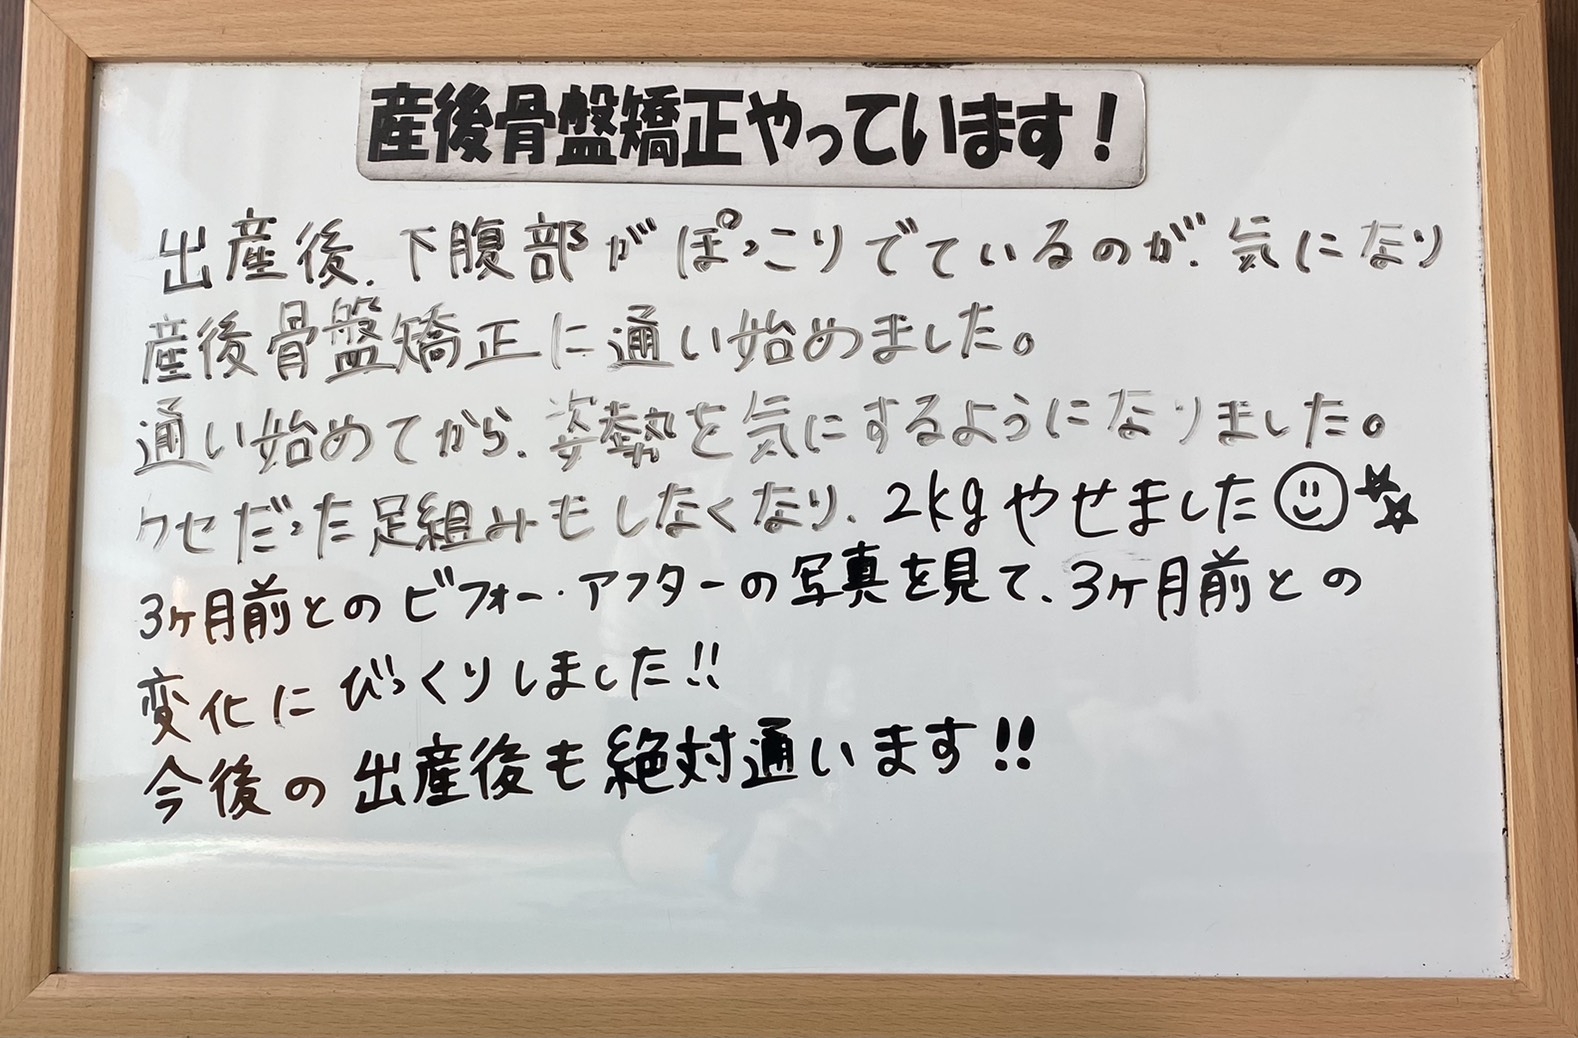 産後骨盤矯正やっています！
出産後、下腹部がぽっこりでているのが、気になり
産後骨盤矯正に通い始めました。
通い始めてから、姿勢を気にするようになりました。
クセだった足組みもしなくなり、2kgやせました
3ヶ月前とのビフォー・アフターの写真を見て、3ヶ月前との
変化にびっくりしました!!
今後の出産後も絶対通います!!